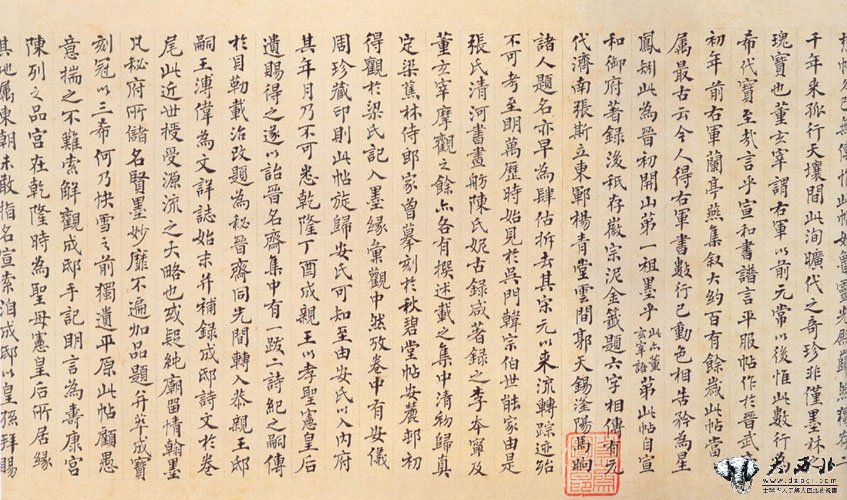 帖久已無傳惟此帖如魯靈光殿巋然獨存二
千年來孤行天壤間此洵曠代之奇珍非僅墨林
瑰寶也董玄宰謂右軍以前元常以後惟此數行
希代寶至哉言乎宣和書譜言平服帖作於晉武
初年前右軍蘭亭燕集敘大約百有餘歲此帖當
屬最古云今人得右軍書數行已動色相告矜為星
鳳矧此為晉初開山第一祖墨乎此亦董玄宰語第此帖自宣
和御府著錄後秪存徽宗泥金籤題六字相傳有元
代濟南張斯立東鄆楊青堂雲間郭天錫滏陽馬昫
諸人題名亦早為肆估拆去其宋元以來流轉踪迹殆
不可考至明萬歷時始見於吳門韓宗伯世能家由是
張氏清河書畫舫陳氏妮古錄咸著錄之李本寧及
董玄宰摩觀之餘亦各有撰述載之集中清初歸真
定梁蕉林侍郎家曾摹刻於秋碧堂帖安麓邨初
得觀於梁氏記入墨緣彙觀中然攷卷中有安儀
周珍藏印則此帖旋歸安氏可知至由安氏以入內府
其年月乃不可悉乾隆丁酉成親王以孝聖憲皇后
遺賜得之遂以詒晉名齋集中有一跋二詩紀之嗣傳
於貝勒載治改題為秘晉齋同光間轉入恭親王邸
嗣王溥偉為文詳誌始末并補錄成邸詩文於卷
尾此近世授受源流之大略也或疑純廟留情翰墨
凡秘府所儲名賢墨妙靡不遍加品題并萃成寶
刻冠以三希何乃快雪之前獨遺平原此帖顧愚
意揣之不難索解觀成邸手記明言為壽康宮
陳列之品宮在乾隆時為聖母憲皇后所居緣
其地屬東朝未敢指名宣索洎成邸以皇孫拜賜